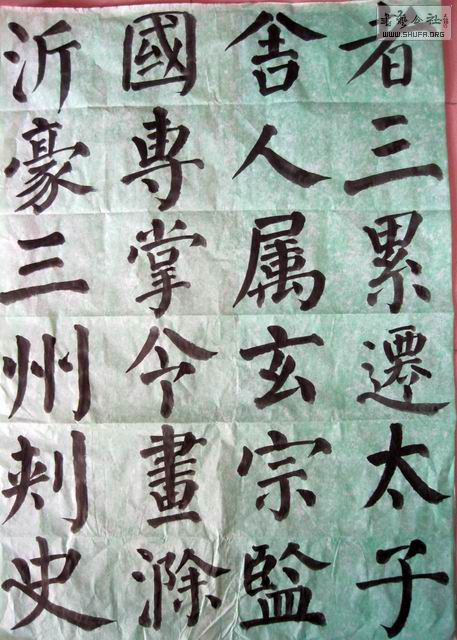 者三累遷太子
舍人属玄宗監
國專掌令畫滁
沂豪三州刾史
WWW.SHUFA.ORG